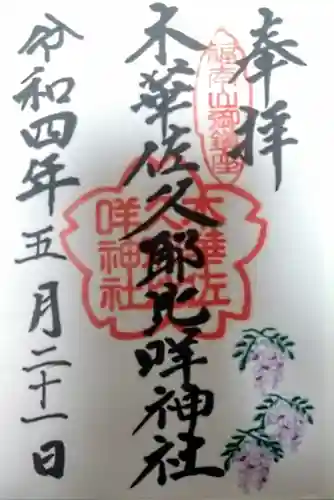 奉拝
木華佐久耶比咩神社
令和四年五月二十一日
福南山御鎮座
木華佐久耶比咩神社